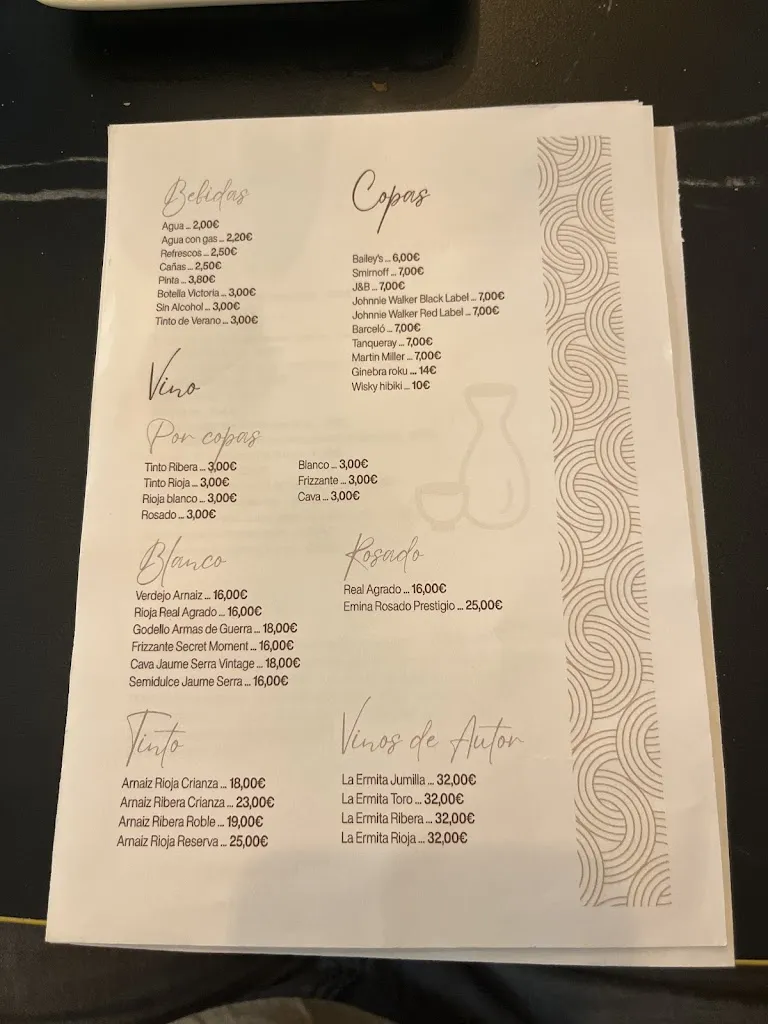 Bebidas
Agua ... 2,00€
Agua con gas ... 2,20€
Refrescos ... 2,50€
Cañas ... 2,50€
Pinta ... 3,80€
Botella Victoria ... 3,00€
Sin Alcohol ... 3,00€
Tinto de Verano ... 3,00€
Copas
Bailey's ... 6,00€
Smirnoff ... 7,00€
J&B ... 7,00€
Johnnie Walker Black Label ... 7,00€
Johnnie Walker Red Label ... 7,00€
Barceló ... 7,00€
Tanqueray ... 7,00€
Martin Miller ... 7,00€
Ginebra roku ... 14€
Wisky hibiki ... 10€
Vino
Por copas
Tinto Ribera ... 3,00€
Tinto Rioja ... 3,00€
Rioja blanco ... 3,00€
Rosado ... 3,00€
Blanco ... 3,00€
Frizzante ... 3,00€
Cava ... 3,00€
Blanco
Verdejo Arnaiz ... 16,00€
Rioja Real Agrado ... 16,00€
Godello Armas de Guerra ... 18,00€
Frizzante Secret Moment ... 16,00€
Cava Jaume Serra Vintage ... 18,00€
Semidulce Jaume Serra ... 16,00€
Rosado
Real Agrado ... 16,00€
Emina Rosado Prestigio ... 25,00€
Tinto
Arnaiz Rioja Crianza ... 18,00€
Arnaiz Ribera Crianza ... 23,00€
Arnaiz Ribera Roble ... 19,00€
Arnaiz Rioja Reserva ... 25,00€
Vinos de Autor
La Ermita Jumilla ... 32,00€
La Ermita Toro ... 32,00€
La Ermita Ribera ... 32,00€
La Ermita Rioja ... 32,00€